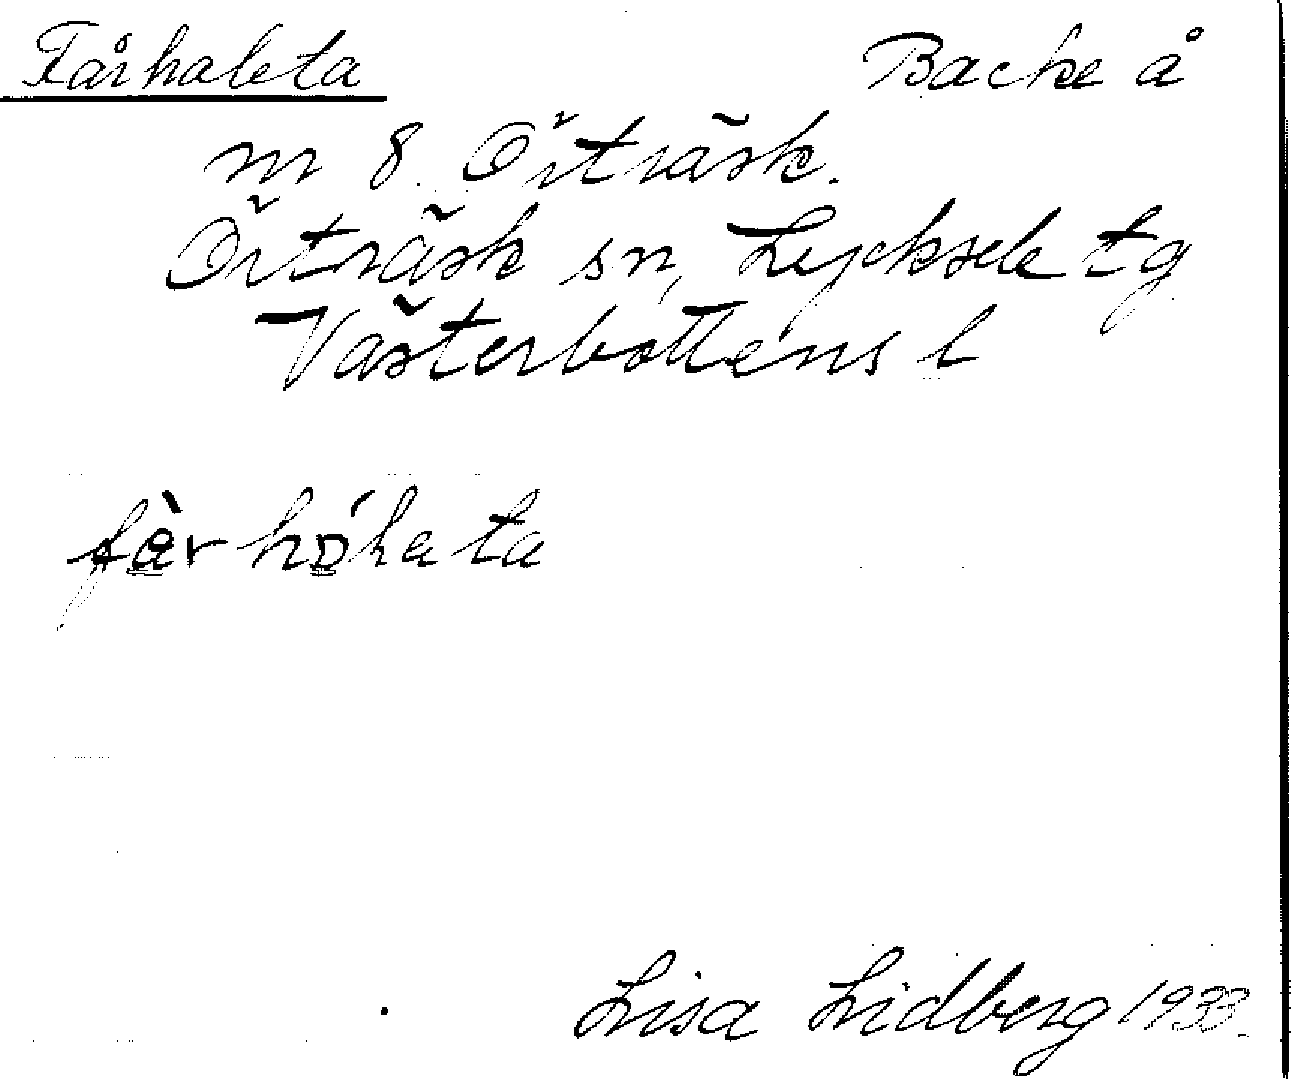 Fårhaleta Backe å
nr 8 Örträsk.
Örträsk sn, Lycksele tg
Västerbottens l
fàr hóhata
Lisa Lidberg 1933.